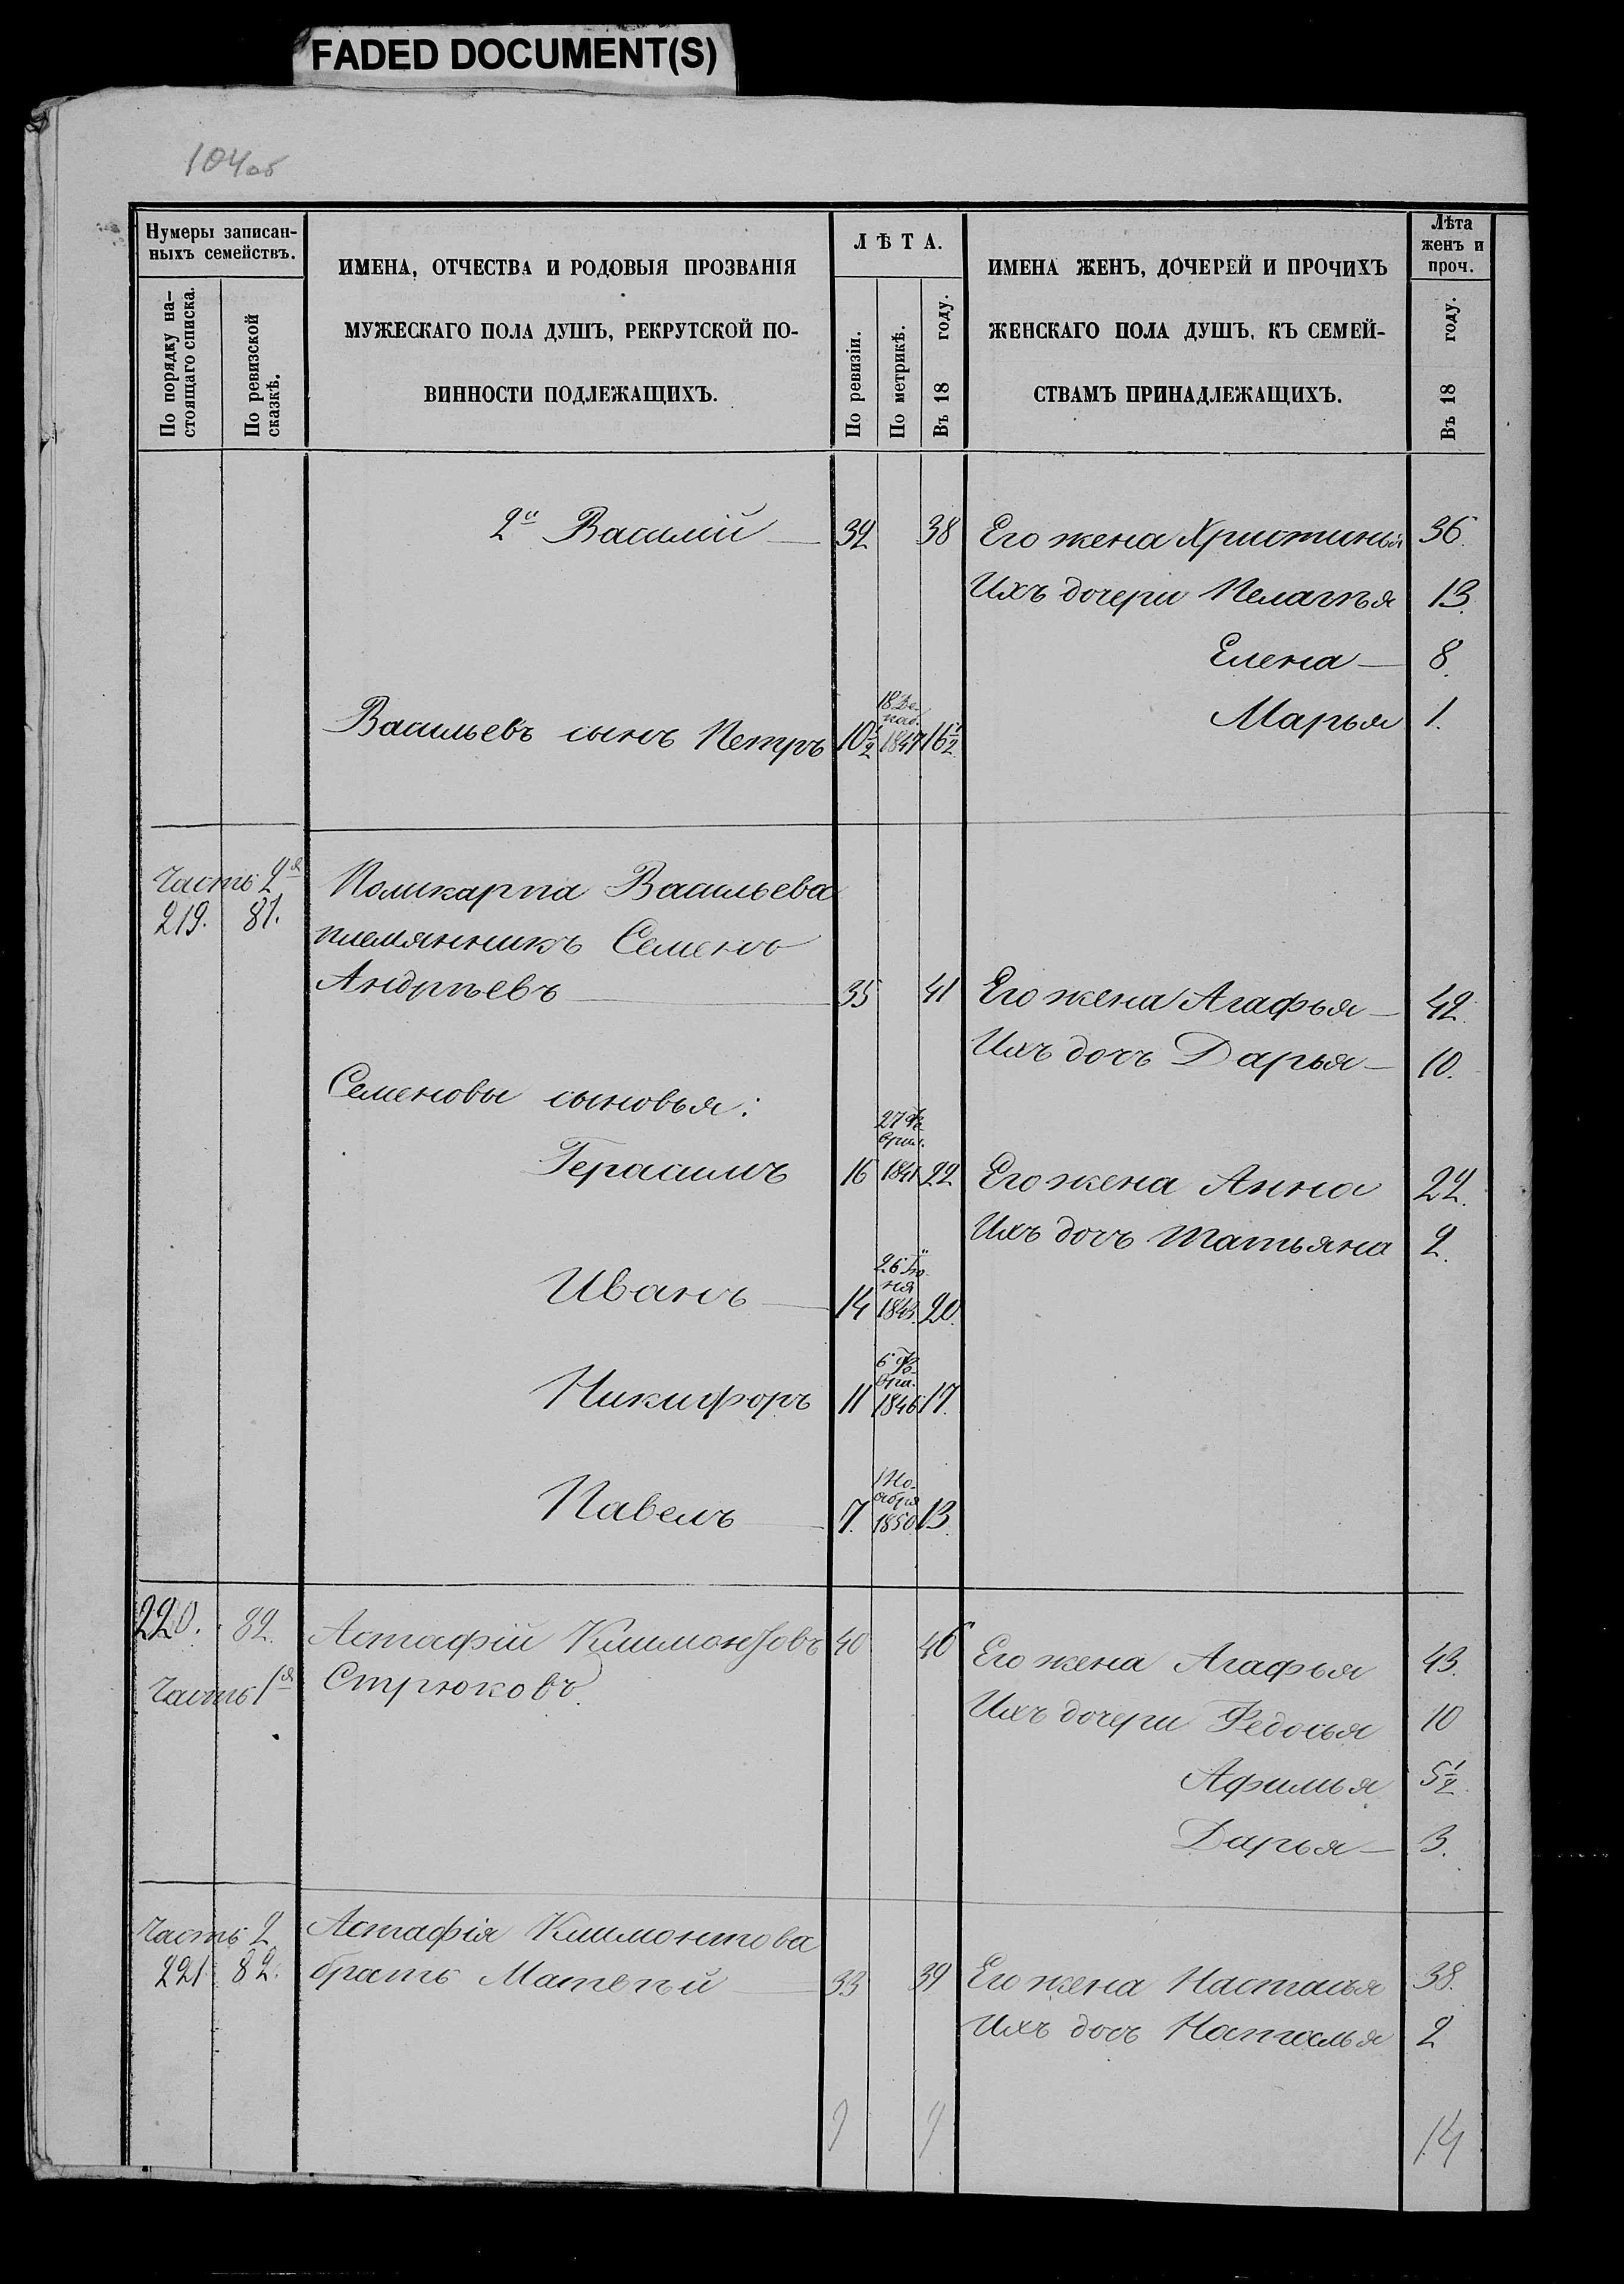 FADED DOCUMENT(S)
104об
Нумеры записан-
ныхъ семействъ.
По порядку на-
стоящаго списка.
По ревизской
сказкѣ.
ИМЕНА, ОТЧЕСТВА И РОДОВЫЯ ПРОЗВАНІЯ
МУЖЕСКАГО ПОЛА ДУШЪ, РЕКРУТСКОЙ ПО-
ВИННОСТИ ПОДЛЕЖАЩИХЪ.
ЛѢТА.
По ревизіи.
По метрикѣ.
Въ 18 году.
ИМЕНА ЖЕНЪ, ДОЧЕРЕЙ И ПРОЧИХЪ
ЖЕНСКАГО ПОЛА ДУШЪ, КЪ СЕМЕЙ-
СТВАМЪ ПРИНАДЛЕЖАЩИХЪ.
Лѣта
женъ и
проч.
Въ 18 году.
2й Василій 32 38 Его жена Христинья 36.
Ихъ дочери Пелагѣя 13.
Елена 8.
Марья 1.
18 Де-
каб.
Васильевъ сынъ Петръ 10½ 1847 16½
Часть 2я
219. 81.
Поликарпа Васильева
племянникъ Семенъ
Андрѣевъ 35 41 Его жена Агафья 42.
Ихъ дочь Дарья 10.
Семеновы сыновья:
27 Фе-
врал.
Герасимъ 16 1841 22 Его жена Анна 22.
Ихъ дочь Татьяна 2.
26 Ію-
ня
Иванъ 14 1843. 20.
6 Фе-
вра.
Никифоръ 11 1846 17.
1 Но-
ября
Павелъ 7. 1850 13.
220. 82. Астафій Климонтовъ 40 46 Его жена Агафья 43.
Часть 1я Стрюковъ.
Ихъ дочери Федосья 10
Афимья 5½
Дарья 3.
Часть 2 Астафія Климонтова
221 82. братъ Матвѣй 33 39 Его жена Настасья 38.
Ихъ дочь Наталья 2
9 9 14